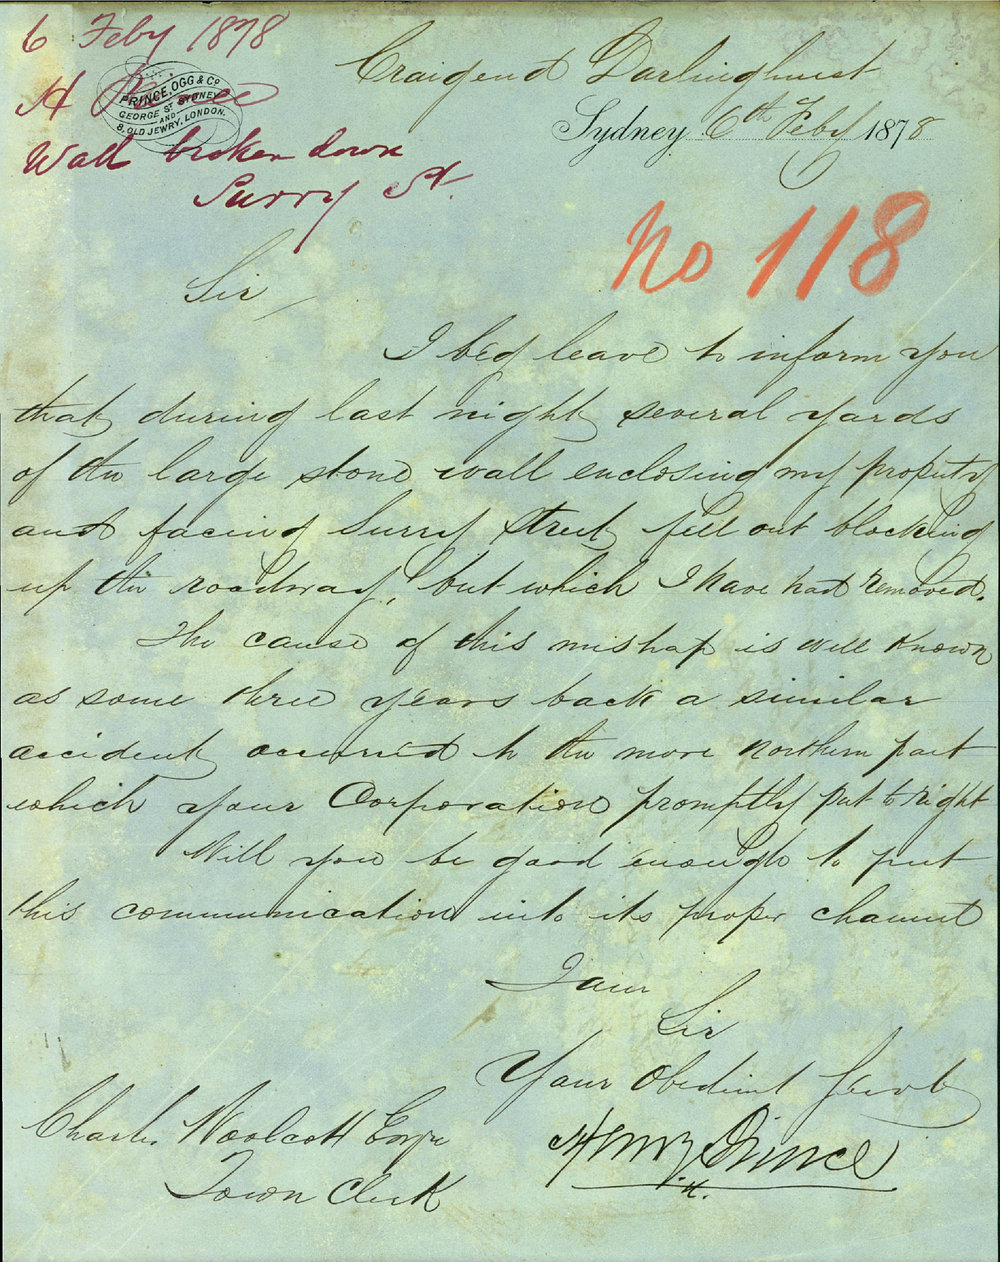 6 Feby 1878
H Prince
PRINCE, OGG & Co
GEORGE St SYDNEY
AND
8, OLD JEWRY, LONDON.
Wall broken down
Surry St.
Craigend Darlinghurst
Sydney 6th Feby 1878
No 118
Sir
I beg leave to inform you
that during last night several yards
of the large stone wall enclosing my property
and facing Surry Street fell out blocking
up the roadway, but which I have had removed.
The cause of this mishap is well known
as some three years back a similar
accident occurred to the more northern part
which your Corporation promptly put to right
Will you be good enough to put
this communication into its proper channel
I am
Sir
Your Obedient Servt
Henry Prince
Charles Woolcott Esqre
Town Clerk